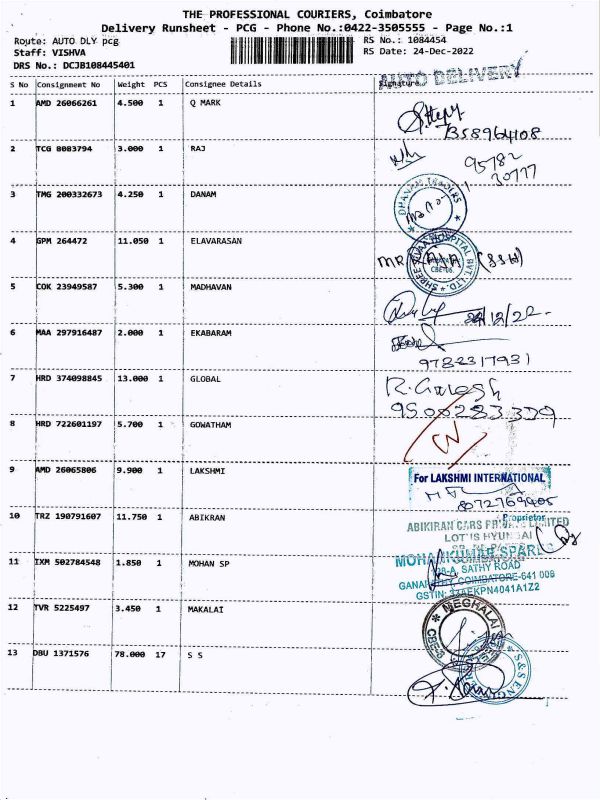 THE PROFESSIONAL COURIERS, Coimbatore
Delivery Runsheet - PCG - Phone No.:0422-3505555 - Page No.:1
Route: AUTO DLY pcg
RS No.: 1084454
Staff: VISHVA
RS Date: 24-Dec-2022
DRS No.: DCJB108445401
AUTO DELIVERY
S No Consignment No Weight PCS Consignee Details Signature
1 AMD 26066261 4.500 1 Q MARK
2 TCG 8083794 3.000 1 RAJ
95782
30777
3 TMG 200332673 4.250 1 DANAM
DHANAM TRADERS
4 GPM 264472 11.050 1 ELAVARASAN
MR RAJA (SSH)
HOSPITAL PVT. LTD.
5 COK 23949587 5.300 1 MADHAVAN
24/12/22
6 MAA 297916487 2.000 1 EKABARAM
9782317931
7 HRD 374098845 13.000 1 GLOBAL
R. Ganesh
9500283339
8 HRD 722601197 5.700 1 GOWATHAM
9 AMD 26065806 9.900 1 LAKSHMI
For LAKSHMI INTERNATIONAL
8072769405
Proprietor
10 TRZ 190791607 11.750 1 ABIKRAN
ABIKIRAN CARS PRIVATE LIMITED
LOTIS HYUNDAI
11 IXM 502784548 1.850 1 MOHAN SP
MOHANKUMAR SPARES
SATHY ROAD
GANAPATHY, COIMBATORE-641 006
GSTIN: 33AEKPN4041A1Z2
12 TVR 5225497 3.450 1 MAKALAI
MEGHALAI
CBE-6
13 DBU 1371576 78.000 17 S S
S & S ENGG